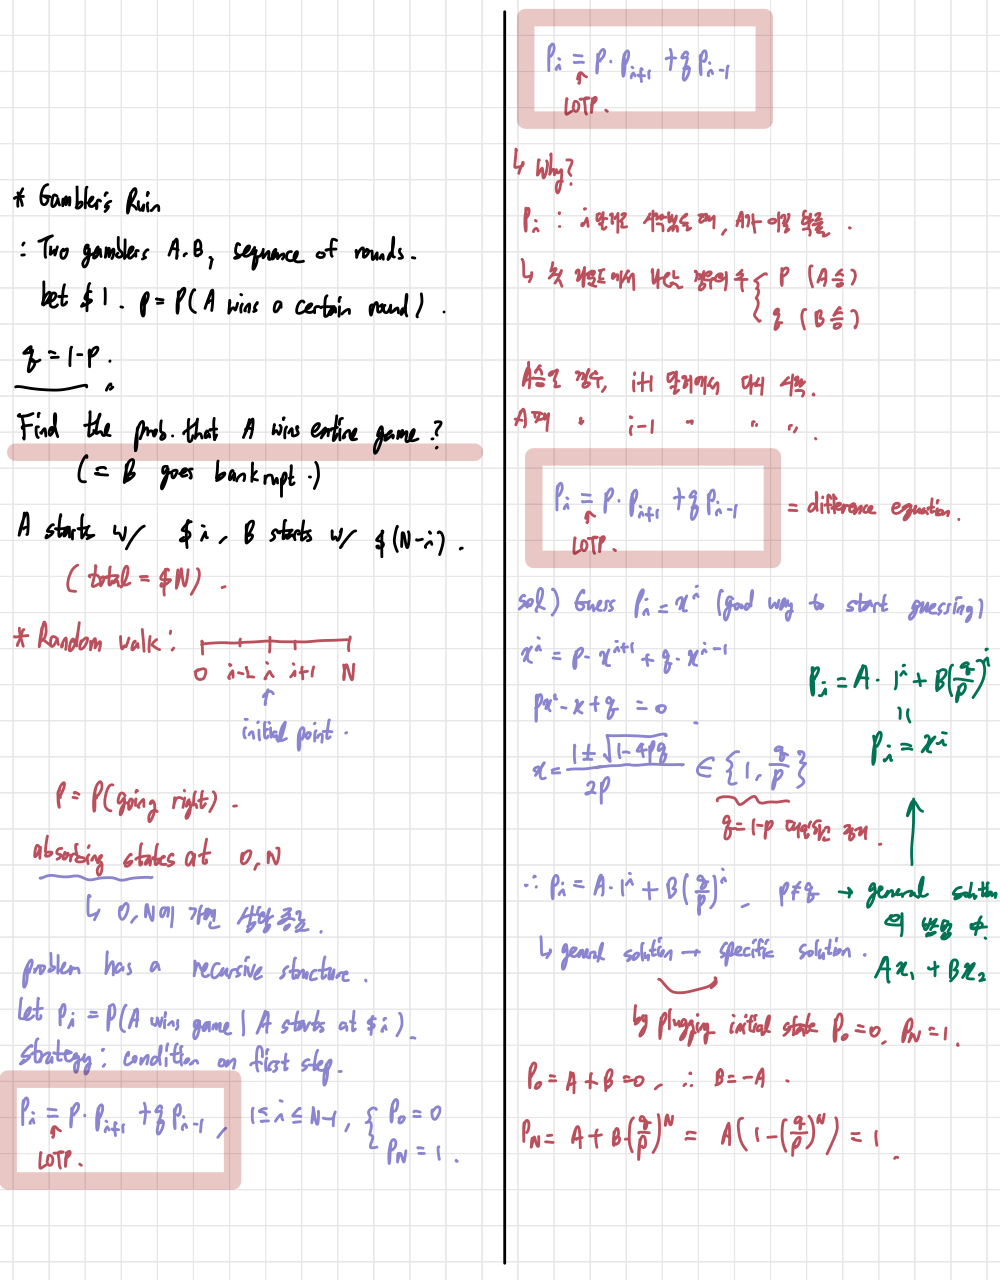 * Gambler's Ruin
: Two gamblers A.B, sequence of rounds.
bet $1. p = P(A wins a certain round).
q = 1-p.
Find the prob. that A wins entire game?
(= B goes bankrupt.)
A starts w/ $i, B starts w/ $(N-i).
(total = $N).
* Random walk:
0 i-1 i i+1 N
↑
initial point.
P = P(going right).
absorbing states at 0, N
↳ 0, N에 가면 상황 종료.
problem has a recursive structure.
Let Pᵢ = P(A wins game | A starts at $i).
strategy: condition on first step.
Pᵢ = P·Pᵢ₊₁ + qPᵢ₋₁, 1≤i≤N-1, { P₀ = 0
P_N = 1.
↑
LOTP.
Pᵢ = P·Pᵢ₊₁ + qPᵢ₋₁
↑
LOTP.
↳ Why?
Pᵢ : i 달러로 시작했을 때, A가 이길 확률.
↳ 첫 라운드에서 나는 경우의 수 { P (A승)
q (B승)
A승일 경우, i+1 달러에서 다시 시작.
A패 " i-1 " " ".
Pᵢ = P·Pᵢ₊₁ + qPᵢ₋₁ = difference equation.
↑
LOTP.
sol) Guess Pᵢ = xⁱ (good way to start guessing)
xⁱ = p·xⁱ⁺¹ + q·xⁱ⁻¹
px² - x + q = 0.
x = (1±√(1-4pq))/2p ∈ {1, q/p}
q = 1-p 대입하면
Pᵢ = A·1ⁱ + B(q/p)ⁱ
=
Pᵢ = xⁱ
↑
∴ Pᵢ = A·1ⁱ + B(q/p)ⁱ, P≠q → general solution
의
Ax₁ + Bx₂
↳ general solution → specific solution.
by plugging initial state P₀=0, P_N=1.
P₀ = A + B = 0, ∴ B = -A.
P_N = A + B·(q/p)ᴺ = A(1-(q/p)ᴺ) = 1.